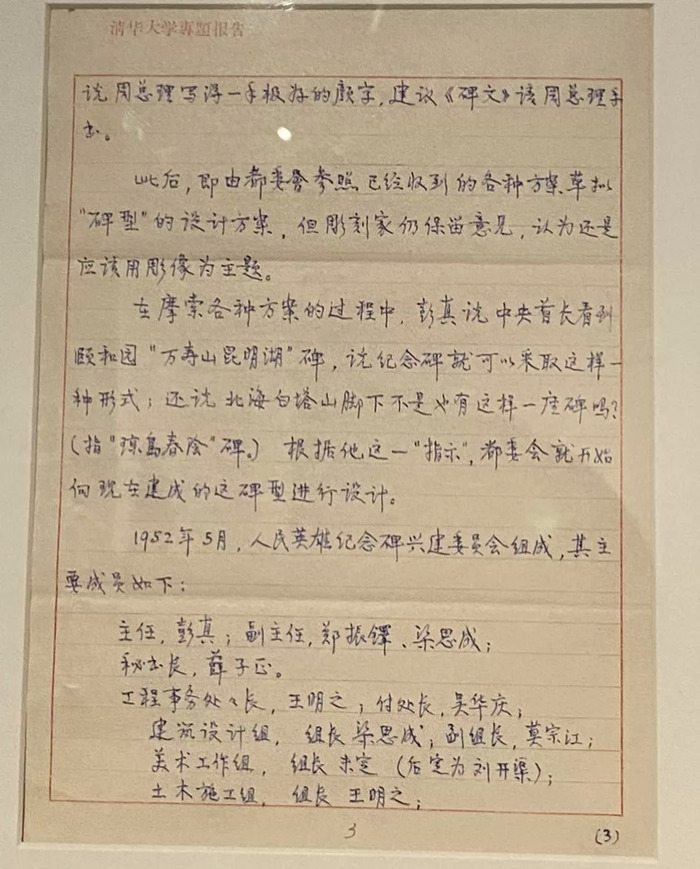 清华大学專題报告
说周总理写得一手极好的颜字，建议《碑文》该周总理手
书。
此后，即由都委会参照已经收到的各种方案草拟
“碑型”的设计方案，但彫刻家仍保留意见，认为还是
应该用彫像为主题。
在摩索各种方案的过程中，彭真说中央首长看到
颐和园“万寿山昆明湖”碑，说纪念碑就可以采取这样一
种形式；还说北海白塔山脚下不是也有这样一座碑吗？
（指“琼岛春阴”碑。） 根据他这一“指示”，都委会就开始
向现在建成的这碑型进行设计。
1952年5月，人民英雄纪念碑兴建委员会组成，其主
要成员如下：
主任，彭真；副主任，郑振铎、梁思成；
秘书长，薛子正。
工程事务处々长，王明之；付处长，吴华庆；
建筑设计组， 组长梁思成；副组长，莫宗江；
美术工作组， 组长未定（后定为刘开渠）；
土木施工组， 组长 王明之；
3
(3)